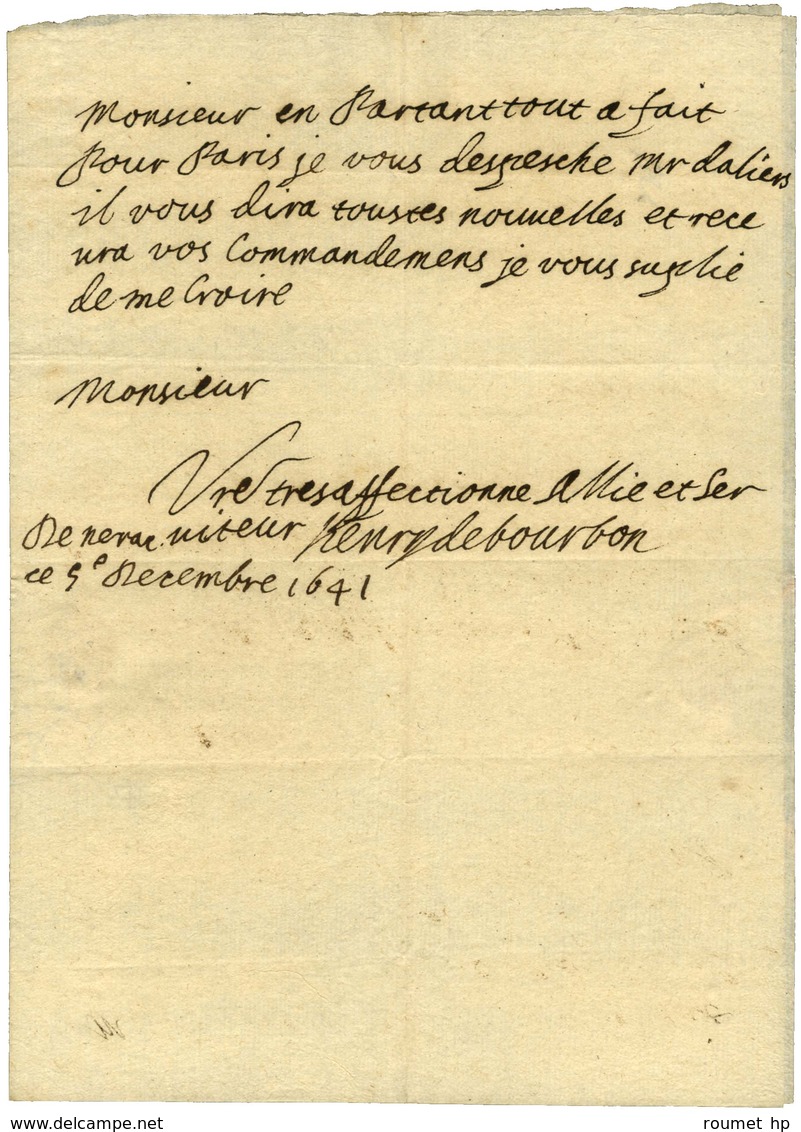 Monsieur en Partant tout a fait
Pour Paris je vous despesche Mr daliers
il vous dira toustes nouuelles et rece
ura vos Commandemens je vous suplie
de me Croire
Monsieur
Vre tres affectionne Allie et Ser
De nerac uiteur henry de bourbon
ce 5e Decembre 1641
www.delcampe.net
roumet hp